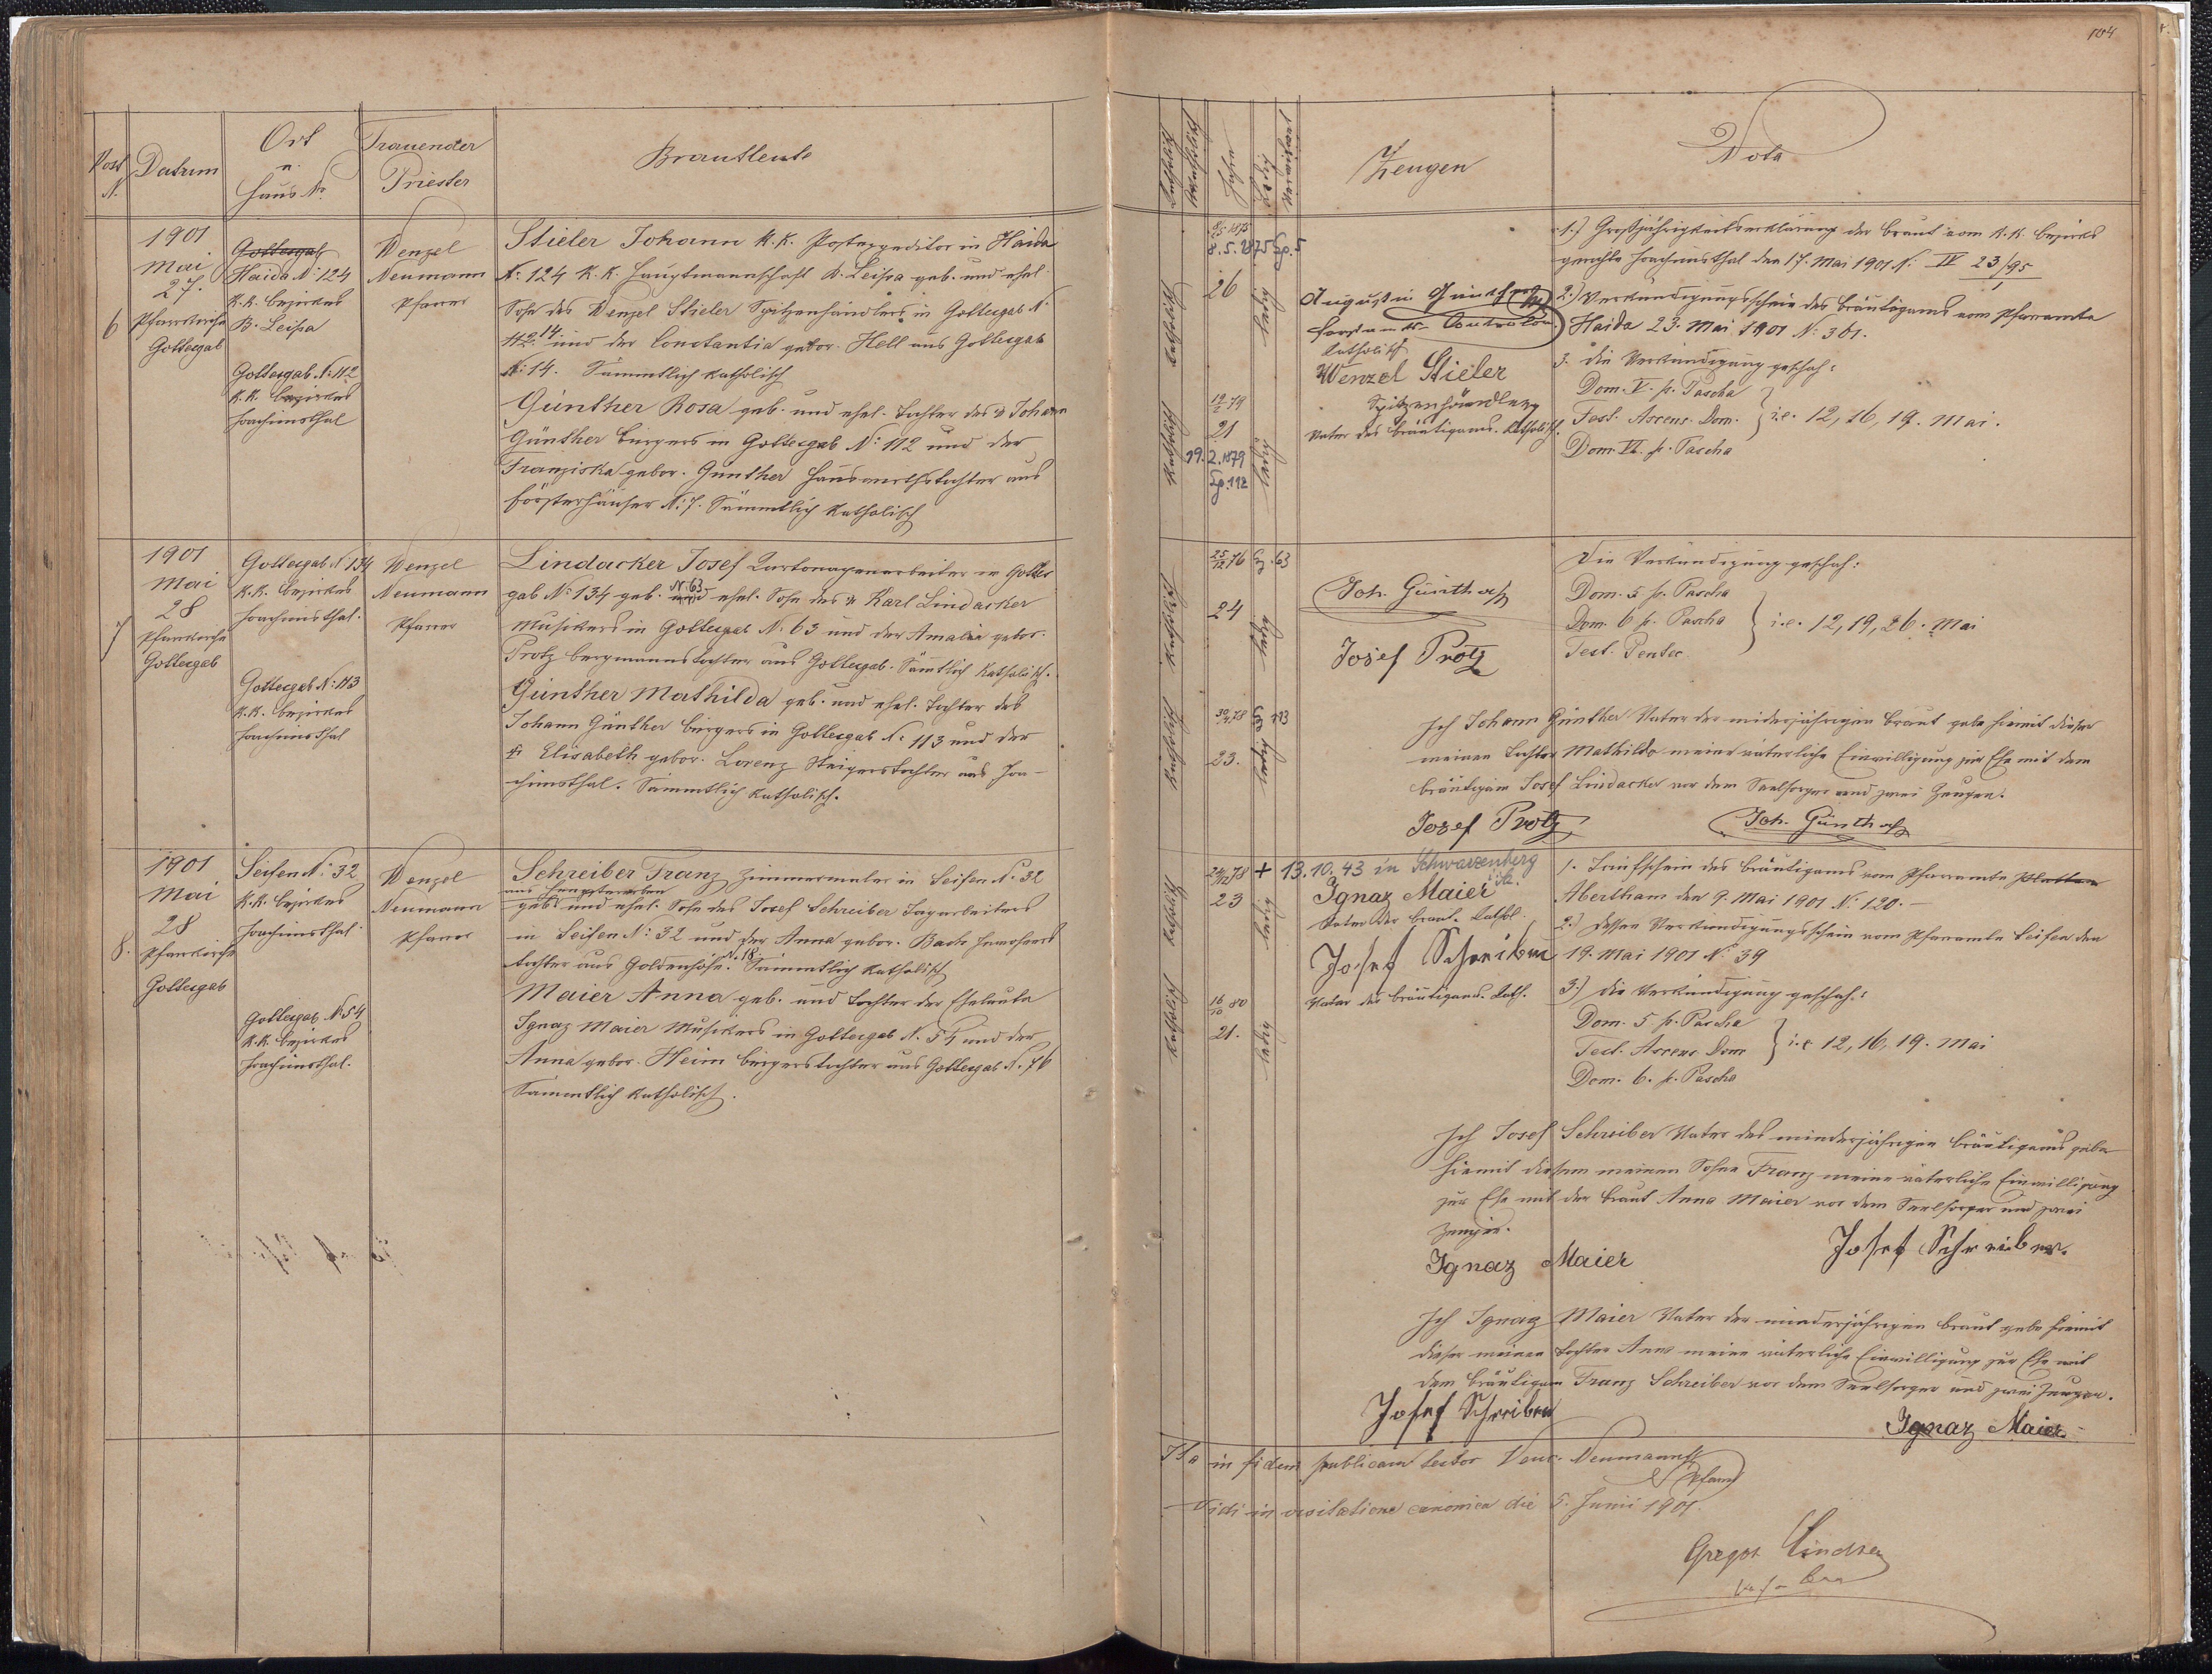 104
Post
N.
Datum
Ort
u.
Haus N.
Trauender
Priester
Brautleute
Religion
katholisch
Jahre
Zeugen
Nota
6
1901
Mai
27.
Pfarrkirche
Gottesgab
Gottesgab
Haida N: 124
K.K. Bezirkes
B. Leipa
Gottesgab N: 112
K.K. Bezirkes
Joachimsthal
Wenzel
Neumann
Pfarrer
Stieler Johann K.K. Postexpeditor in Haida
N: 124 K.K. Hauptmannschaft B. Leipa geb. und ehel.
Sohn des Wenzel Stieler Spitzenhändlers in Gottesgab N.
112 14 und der Constantia gebor. Hell aus Gottesgab
N: 14. Sämmtlich katholisch
Günther Rosa geb. und ehel. Tochter des † Johann
Günther Bürgers in Gottesgab N: 112 und der
Franziska gebor. Günther Hauswirthstochter aus
Försterhäuser N: 7. Sämmtlich katholisch
katholisch
8.5.1875 Gg. 5
26
ledig
katholisch
19/2 79
21
19.2.1879
Gg. 112
ledig
Augustin Günther
Forstamts-Controlor
katholisch
Wenzel Stieler
Spitzenhändler
Vater des Bräutigams. Katholisch.
1.) Großjährigkeitserklärung der Braut vom K.K. Bezirks
gerichte Joachimsthal den 17. Mai 1901 N. IV 23/95
2.) Verkündigungsschein des Bräutigams vom Pfarramte
Haida 23. Mai 1901 N: 301.
3. Die Verkündigung geschah:
Dom. V. p. Pascha
Fest. Ascens. Dom. } i.e. 12, 16, 19. Mai.
Dom. VI. p. Pascha
7
1901
Mai
28
Pfarrkirche
Gottesgab
Gottesgab N: 134
K.K. Bezirkes
Joachimsthal.
Gottesgab N: 113
K.K. Bezirkes
Joachimsthal
Wenzel
Neumann
Pfarrer
Lindacker Josef Kartonagenarbeiter in Gottes
gab N: 134 geb. N: 63 und ehel. Sohn des † Karl Lindacker
Musikers in Gottesgab N. 63 und der Amalia gebor.
Protz Bergmannstochter aus Gottesgab. Sämtlich katholisch.
Günther Mathilda geb. und ehel. Tochter des
Johann Günther Bürgers in Gottesgab N: 113 und der
† Elisabeth gebor. Lorenz Steigerstochter aus Joa-
chimsthal. Sämmtlich katholisch.
katholisch
25/12 76 Gg. 63
24
ledig
katholisch
30/4 78 Gg 113
23.
ledig
Joh. Günther
Josef Protz
Die Verkündigung geschah:
Dom. 5 p. Pascha
Dom. 6 p. Pascha } i.e. 12, 19, 26. Mai
Fest. Pentec.
Ich Johann Günther Vater der minderjährigen Braut gebe hiemit dieser
meinen Tochter Mathilda meine väterliche Einwilligung zur Ehe mit dem
Bräutigam Josef Lindacker vor dem Seelsorger und zwei Zeugen.
Josef Protz Joh. Günther
8.
1901
Mai
28
Pfarrkirche
Gottesgab
Seifen N: 32
K.K. Bezirkes
Joachimsthal
Gottesgab N: 54
K.K. Bezirkes
Joachimsthal.
Wenzel
Neumann
Pfarrer
Schreiber Franz Zimmermaler in Seifen N: 32
geb. und ehel. Sohn des Josef Schreiber Tagarbeiters
in Seifen N: 32 und der Anna gebor. Bach Inwohners
tochter aus Goldenhöhe N. 18. Sämmtlich katholisch
Maier Anna geb. und Tochter der Eheleute
Ignaz Maier Musikers in Gottesgab N. 54 und der
Anna gebor. Heim Bürgerstochter aus Gottesgab N. 76
Sämmtlich katholisch.
katholisch
23
ledig
katholisch
16/10 80
21.
ledig
+ 13.10.43 in Schwarzenberg
Sa.
Ignaz Maier
Vater der Braut. Kathol.
Josef Schreiber
Vater des Bräutigams. Kath.
1. Taufschein des Bräutigams vom Pfarramte Platten
Abertham den 9. Mai 1901 N: 120.-
2.) Dessen Verkündigungsschein vom Pfarramte Seifen den
19. Mai 1901 N: 39
3.) Die Verkündigung geschah:
Dom. 5 p. Pascha
Fest. Ascens. Dom } i.e. 12, 16, 19. Mai
Dom. 6. p. Pascha
Ich Josef Schreiber Vater des minderjährigen Bräutigams gebe
hiemit diesem meinen Sohne Franz meine väterliche Einwilligung
zur Ehe mit der Braut Anna Maier vor dem Seelsorger und zwei
Zeugen.
Ignaz Maier Josef Schreiber.
Ich Ignaz Maier Vater der minderjährigen Braut gebe hiemit
dieser meinen Tochter Anna meine väterliche Einwilligung zur Ehe mit
dem Bräutigam Franz Schreiber vor dem Seelsorger und zwei Zeugen.
Josef Schreiber
Ignaz Maier
Ita in fidem publicam testor Venc. Neumann
Pfarrer
Vidi in visitatione canonica die 5. Junii 1901.
Gregor Lindner